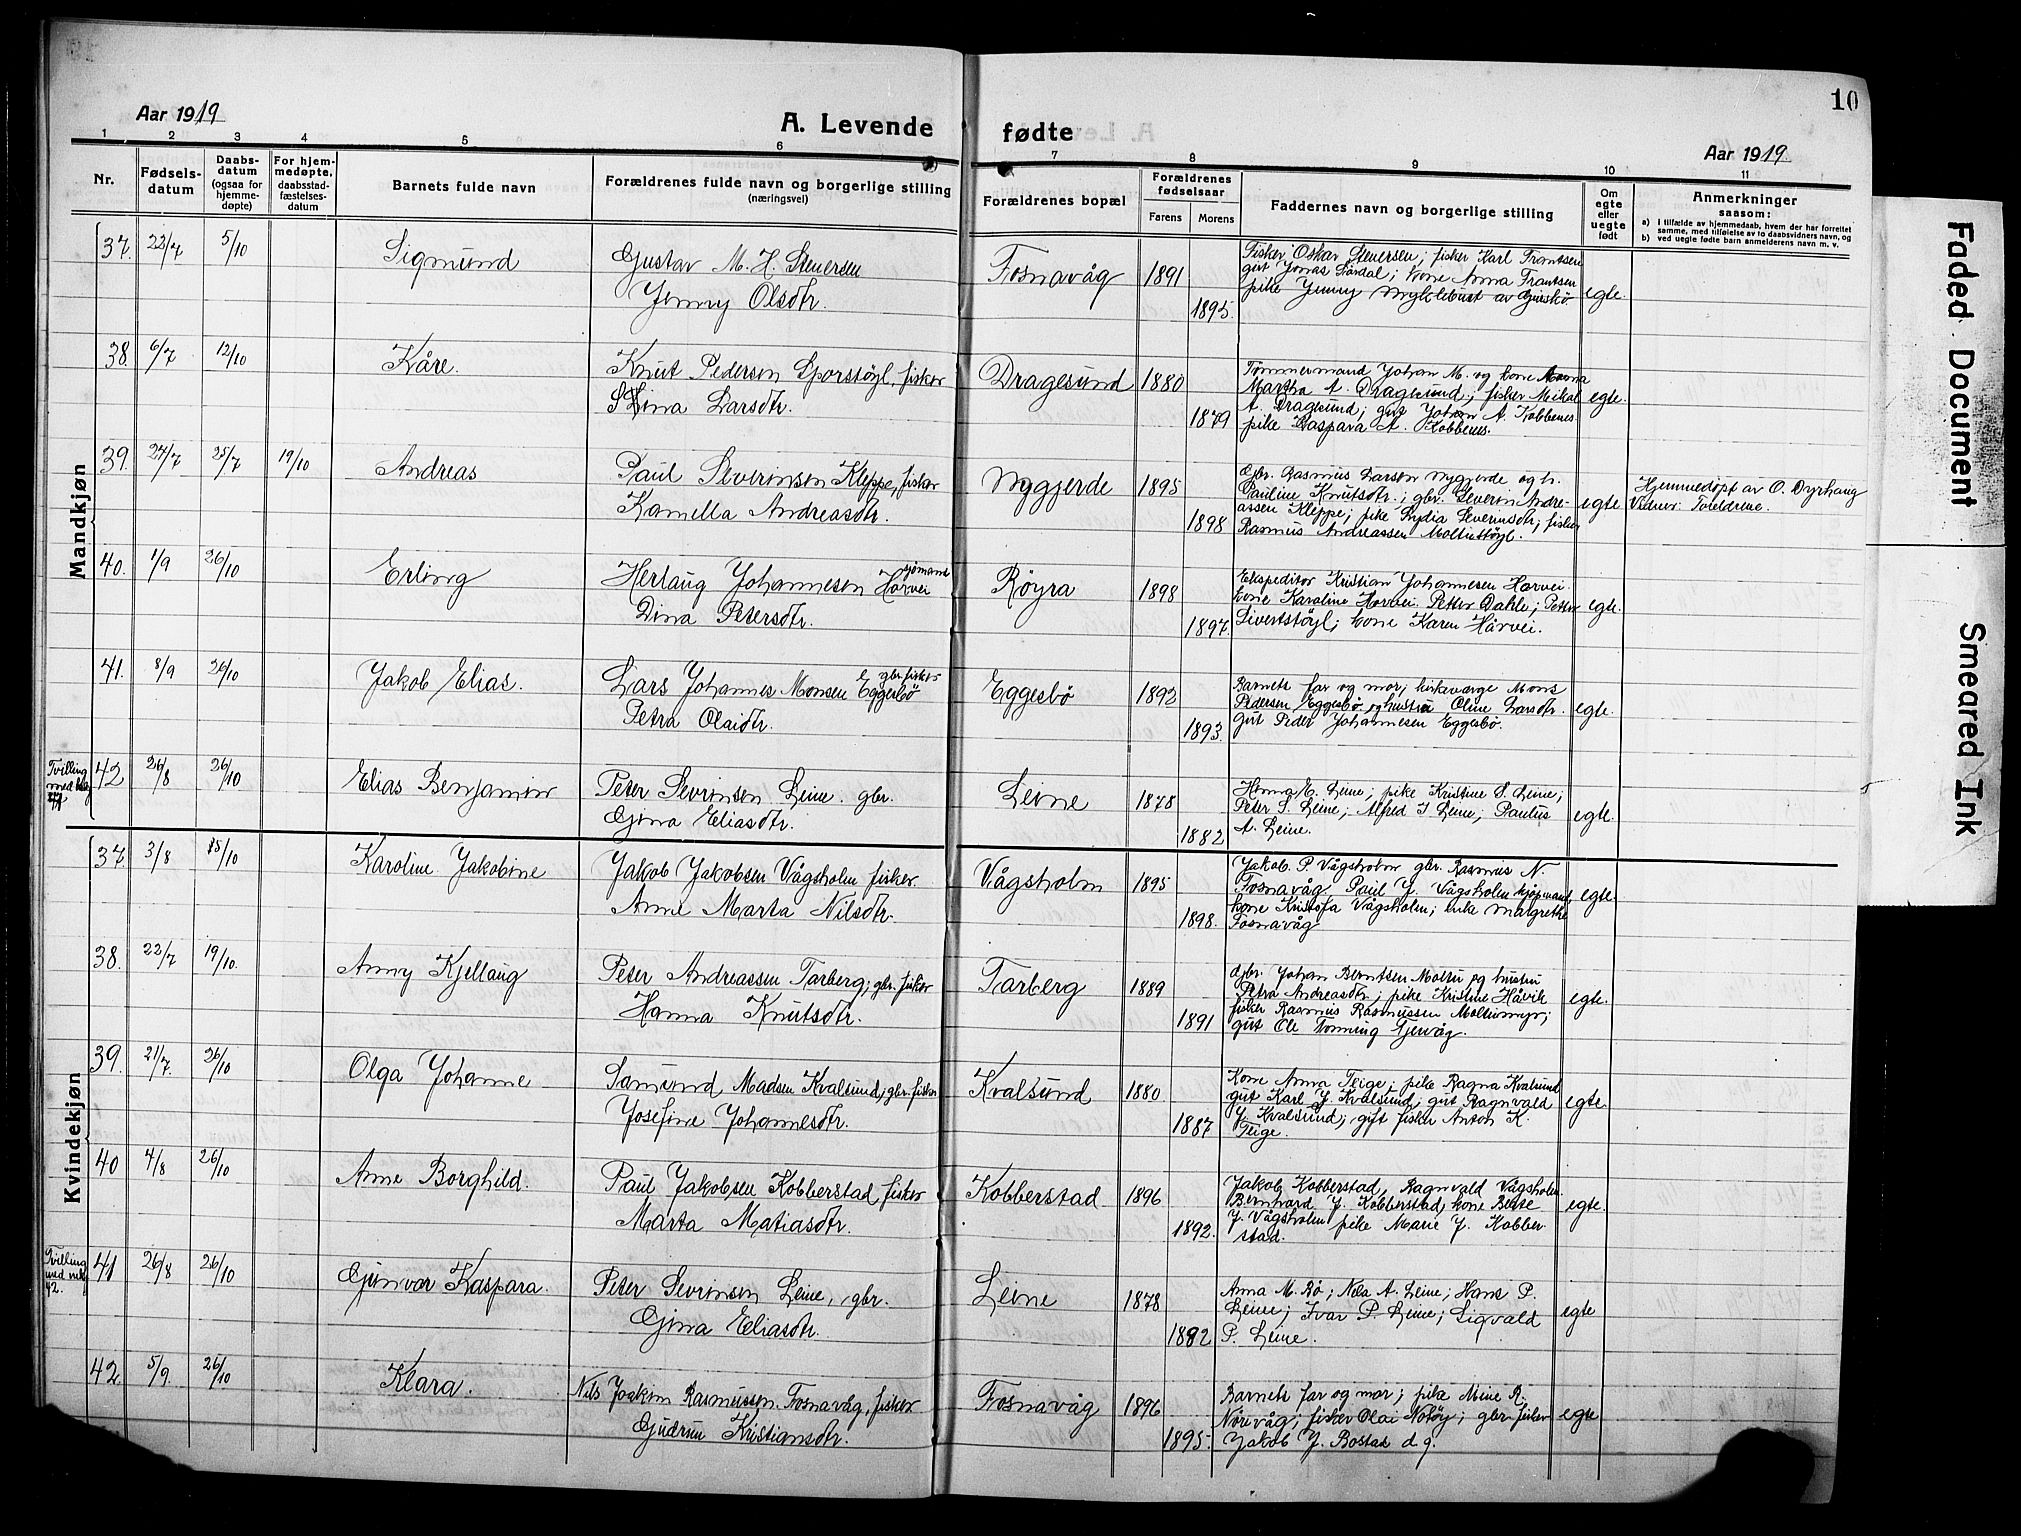 10
Aar 1919
A. Levende fødte
Aar 1919.
1 2 3 4 5 6 7 8 9 10 11
Nr.
Fødsels-
datum
Daabs-
datum
(ogsaa for
hjemme-
døpte)
For hjem-
medøpte,
daabsstad-
fæstelses-
datum
Barnets fulde navn
Forældrenes fulde navn og borgerlige stilling
(næringsvei)
Forældrenes bopæl
Forældrenes
fødselsaar
Farens
Morens
Faddernes navn og borgerlige stilling
Om
egte
eller
uegte
født
Anmerkninger
saasom:
a) I tilfælde av hjemmedaab, hvem der har forrettet
samme, med tilføielse av to daabsvidners navn, og
b) ved uegte fødte barn anmelderens navn m. v.
Mandkjøn
37. 22/7 5/10
Sigmund
Gustav M. H. Stenersen
Jenny Olsdtr.
Fosnavåg 1891
1895.
Fisker Oskar Stenersen; fisker Karl Frantsen
gut Jonas Lårdal; kone Anna Frantsen
pike Jenny Myklebust av Gurskø
egte.
38. 6/7 12/10
Kåre.
Knut Pedersen Sporstøyl, fisker
Stina Larsdtr.
Dragesund 1880
1879
Tømmermand Johan M. og kone
Martha A. Dragesund; fisker Mikal
A. Dragesund; gut Johan A. Kobbenes
pike Kaspara A. Kobbenes.
egte.
39. 24/7 25/7 19/10
Andreas
Paul Severinsen Kleppe, fisker
Kamella Andreasdtr.
Nygjerde 1895
1898
Gbr. Rasmus Larsen Nygjerde og h.
Pauline Knutsdtr.; gbr. Severin Andre-
assen Kleppe; pike Lydia Severinsdtr; fisker
Rasmus Andreassen Moltustøyl.
egte
Hjemmedøpt av O. Dyrhaug
Vidner: Foreldrene.
40. 1/9 26/10
Erling
sjømand
Herlaug Johannesen Hårvei
Dina Petersdtr.
Røyra 1898
1897.
Ekspeditør Kristian Johannesen Hårvei.
kone Karoline Hårvei. Petter Dahle; Petter
Sivertstøyl; kone Karen Hårvei.
egte.
41. 8/9 26/10
Jakob Elias.
gbr. fisker
Lars Johannes Monsen Eggesbø
Petra Olaidtr.
Eggesbø 1892
1893.
Barnets far og mor; kirkeværge Mons
Pedersen Eggesbø og hustru Oline Larsdtr.
gut Peder Johannesen Eggesbø.
egte.
Tvilling
med
41
42 26/8 26/10
Elias Benjamin
Peter Sevrinsen Leine. gbr.
Gjina Eliasdtr.
Leine 1878
1882
Hanna E. Leine; pike Kristine S. Leine;
Peter S. Leine; Alfred I Leine; Paulus
A. Leine.
egte.
Kvindekjøn
37 3/8 15/10
Karoline Jakobine
Jakob Jakobsen Vågsholm fisker.
Anne Marta Nilsdtr.
Vågsholm 1895
1898.
Jakob P. Vågsholm gbr. Rasmus N.
Fosnavåg Paul J. Vågsholm kjøpmand,
kone Kristofa Vågsholm; enke Margrethe
Fosnavåg
egte.
38. 22/7 19/10.
Anny Kjellaug
Peter Andreassen Tarberg; gbr. fisker
Hanna Knutsdtr.
Tarberg 1889
1891
Gbr. Johan Berntsen Moltu og hustru
Petra Andreasdtr; pike Kristine Håvik
fisker Rasmus Rasmussen Moltumyr;
gut Ole Tonning Gjervåg.
egte.
39. 21/7. 26/10
Olga Johanne
Samund Madsen Kvalsund; gbr. fisker
Josefine Johannesdtr.
Kvalsund 1880.
1887
Kone Anna Teige; pike Ragna Kvalsund
gut Karl J. Kvalsund; gut Ragnvald
J. Kvalsund; gift fisker Anton K.
Teige.
egte.
40 4/8 26/10
Anne Borghild.
Paul Jakobsen Kobberstad, fisker
Marta Matiasdtr.
Kobberstad 1896
1892.
Jakob Kobberstad, Ragnvald Vågsholm.
Bernhard J. Kobberstad, kone Berte
J. Vågsholm pike Marie J. Kobber-
stad.
egte.
Tvilling
med
42.
41 26/8 26/10
Gunvor Kaspara.
Peter Sevrinsen Leine, gbr.
Gjina Eliasdtr.
Leine 1878
1882
Anna M. Bø; Nela A. Leine; Hans P.
Leine; Ivar P. Leine; Sigvald
P. Leine.
egte
42 5/9. 26/10
Klara.
Nils Joakim Rasmussen Fosnavåg, fisker
Gudrun Kristiansdtr.
Fosnavåg 1896
1895.
Barnets far og mor; pike Mine R.
Nørevåg; fisker Olai Notøy; gbr. fisker
Jakob J. Bostad d. y.
egte
Faded Document
Smeared Ink